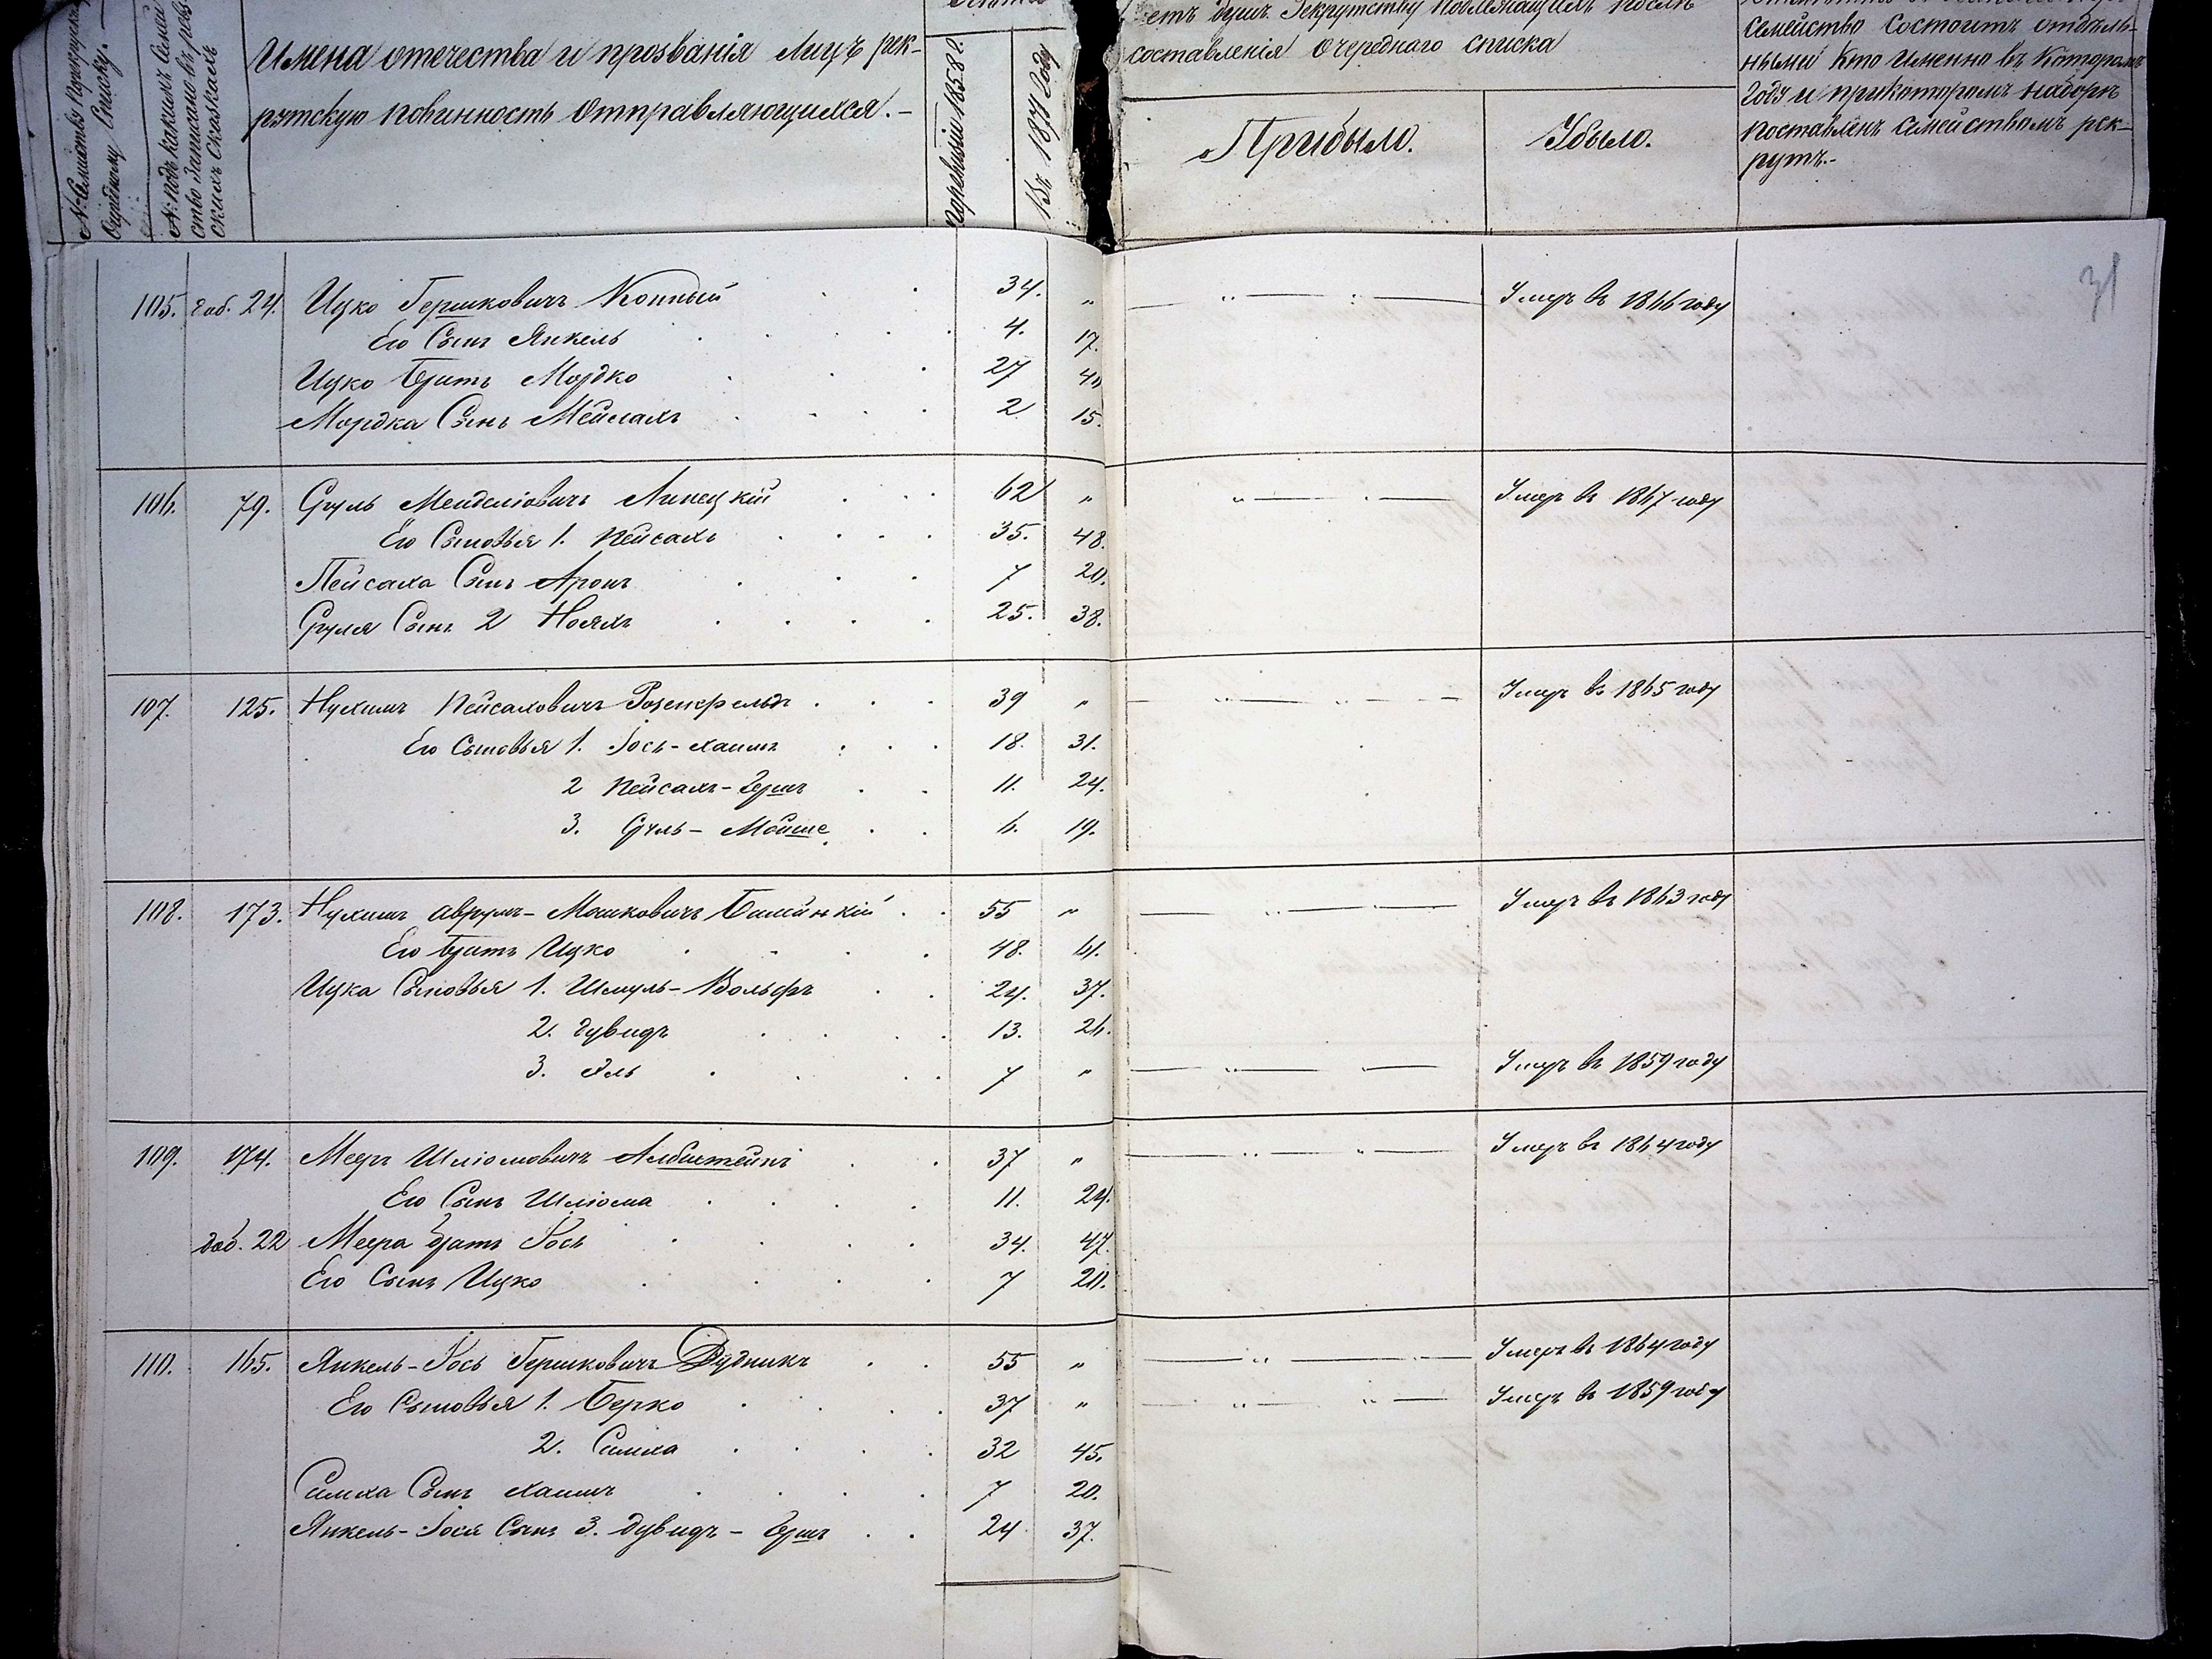 № Семейства по рекрутскому
Очередному Списку.
№ подъ какимъ Семей
ство Записано въ реви-
скихъ Сказкахъ
Имена отечества и прозванія Лицъ рек-
рутскую повинность отправляющихся.
По ревизіи 1858 г.
Въ 1871 Году
етъ душъ Рекрутству подлежащихъ послѣ
составленія очереднаго списка
Прибыло.
Убыло.
Семейство состоитъ отдѣль-
нымъ Кто Именно въ Которомъ
Году и прикоторомъ наборѣ
поставленъ Семействомъ рек-
рутъ.
31
105. Доб. 24. Ицко Гершковичъ Конный 34. " Умеръ въ 1866 году
Его Сынъ Янкель 4. 17.
Ицко братъ Мордко 27 40
Мордка Сынъ Мейлахъ 2 15.
106. 79. Сруль Менделіовичъ Липецкій 62 " Умеръ въ 1867 году
Его Сыновья 1. Пейсахъ 35. 48.
Пейсаха Сынъ Аронъ 7 20.
Сруля Сынъ 2 Нояхъ 25. 38.
107. 125. Нухимъ Пейсаховичъ Розенфельдъ 39 " Умеръ въ 1865 году
Его Сыновья 1. Іось-Хаимъ 18. 31.
2 Пейсахъ-Гершъ 11. 24.
3. Сруль-Мойше 6. 19.
108. 173. Нухимъ Аврумъ-Мошковичъ 55 " Умеръ въ 1863 году
Его братъ Ицко 48. 61.
Ицка Сыновья 1. Шмуль-Вольфъ 24. 37.
2. Дувидъ 13. 26.
3. Эль 7 " Умеръ въ 1859 году
109. 174. Мееръ Шліомовичъ Албштейнъ 37 " Умеръ въ 1864 году
Его Сынъ Шліома 11. 24.
доб. 22 Меера братъ Іось 34. 47.
Его Сынъ Ицко 7 20.
110. 165. Янкель-Іось Гершковичъ Дудникъ 55 " Умеръ въ 1864 году
Его Сыновья 1. Берко 37 " Умеръ въ 1859 году
2. Симха 32 45.
Симха Сынъ Хаимъ 7 20.
Янкель-Іося Сынъ 3. Дувидъ-Гершъ 24. 37.